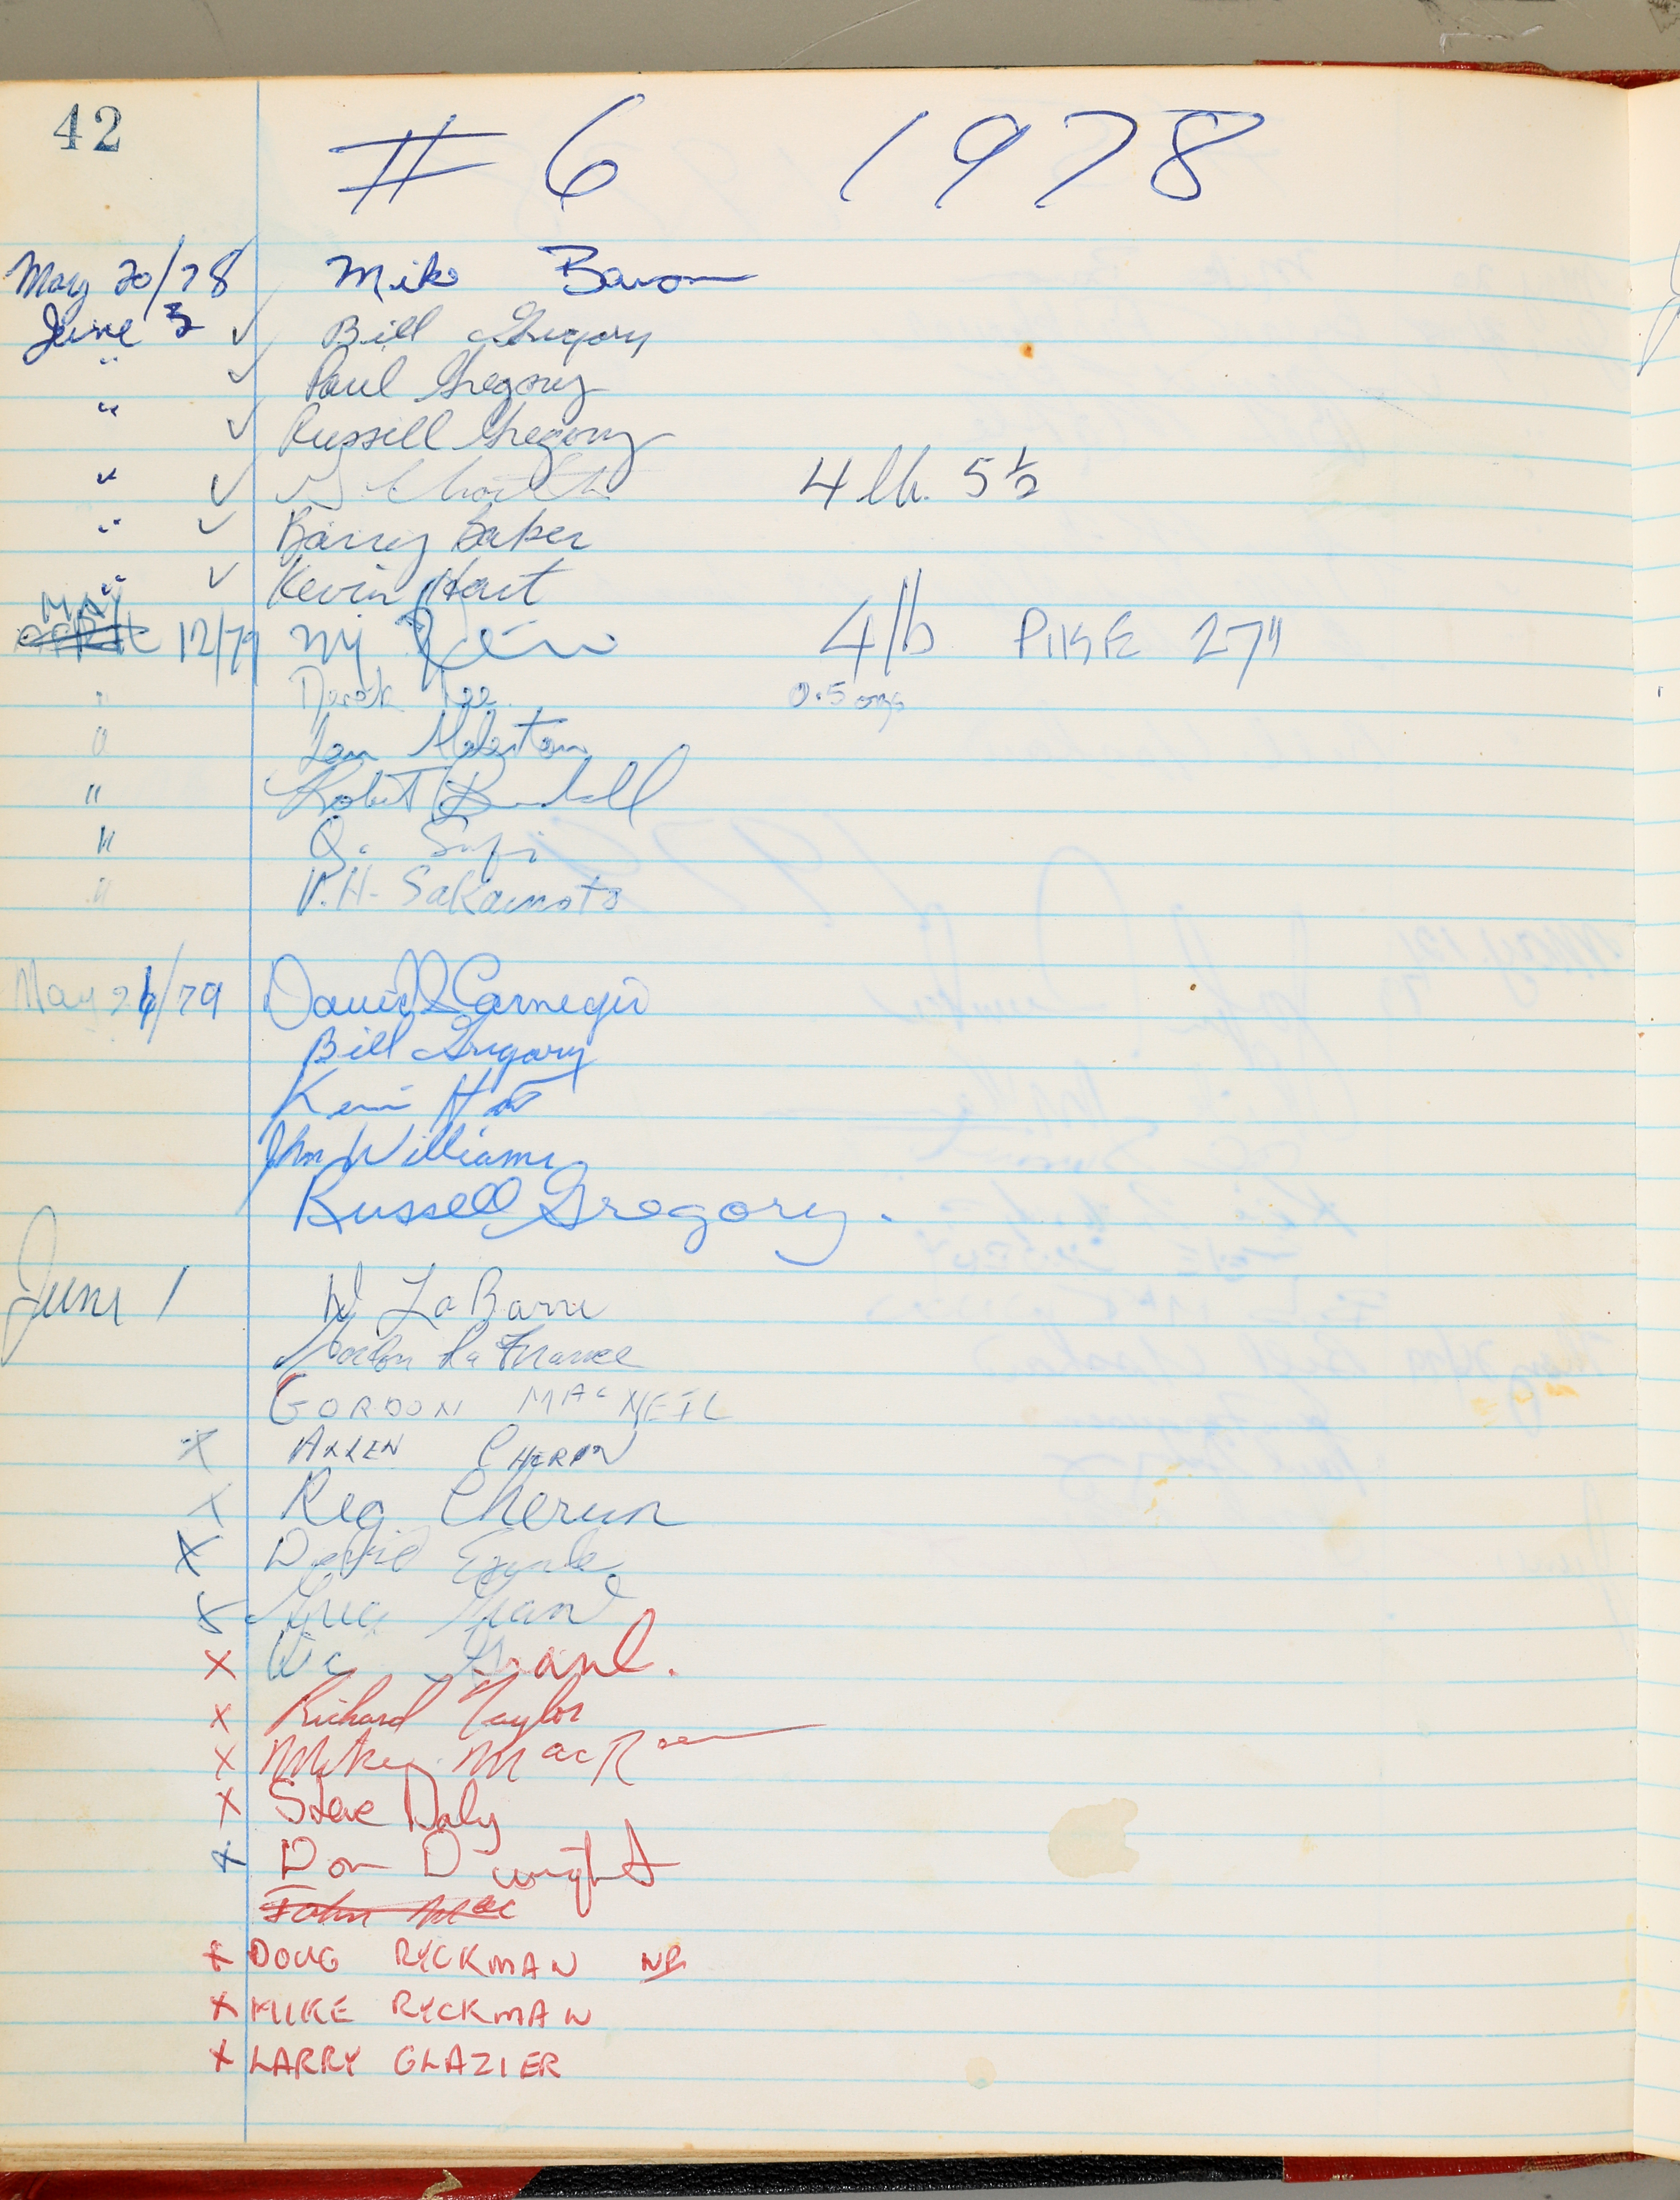 42
# 6 1978
May 20/78 Mike Baron
June 3 ✓ Bill Gregory
" ✓ Paul Gregory
" ✓ Russell Gregory
" ✓ 4 lb. 5½
" ✓ Barry Baker
" ✓ Kevin Hart
MAY
12/79 4 lb PIKE 27"
" Derek Lee 0.5 ozs
" Len
" Robert
" Q. Sufi
" V.H. Sakamoto
May 26/79 David Carnegie
Bill Gregory
Kevin Hart
John Williams
Russell Gregory.
June 1 W LaBarre
Gordon LaFrance
GORDON MacNEIL
x ALLEN CHERUN
x Reg Cherun
x David
x Greg Grant
x Vic Grant.
x Richard Taylor
x Mikey MacR
x Steve Daly
x Don Dwight
John Mac
x DOUG RYCKMAN NB
x MIKE RYCKMAN
x LARRY GLAZIER